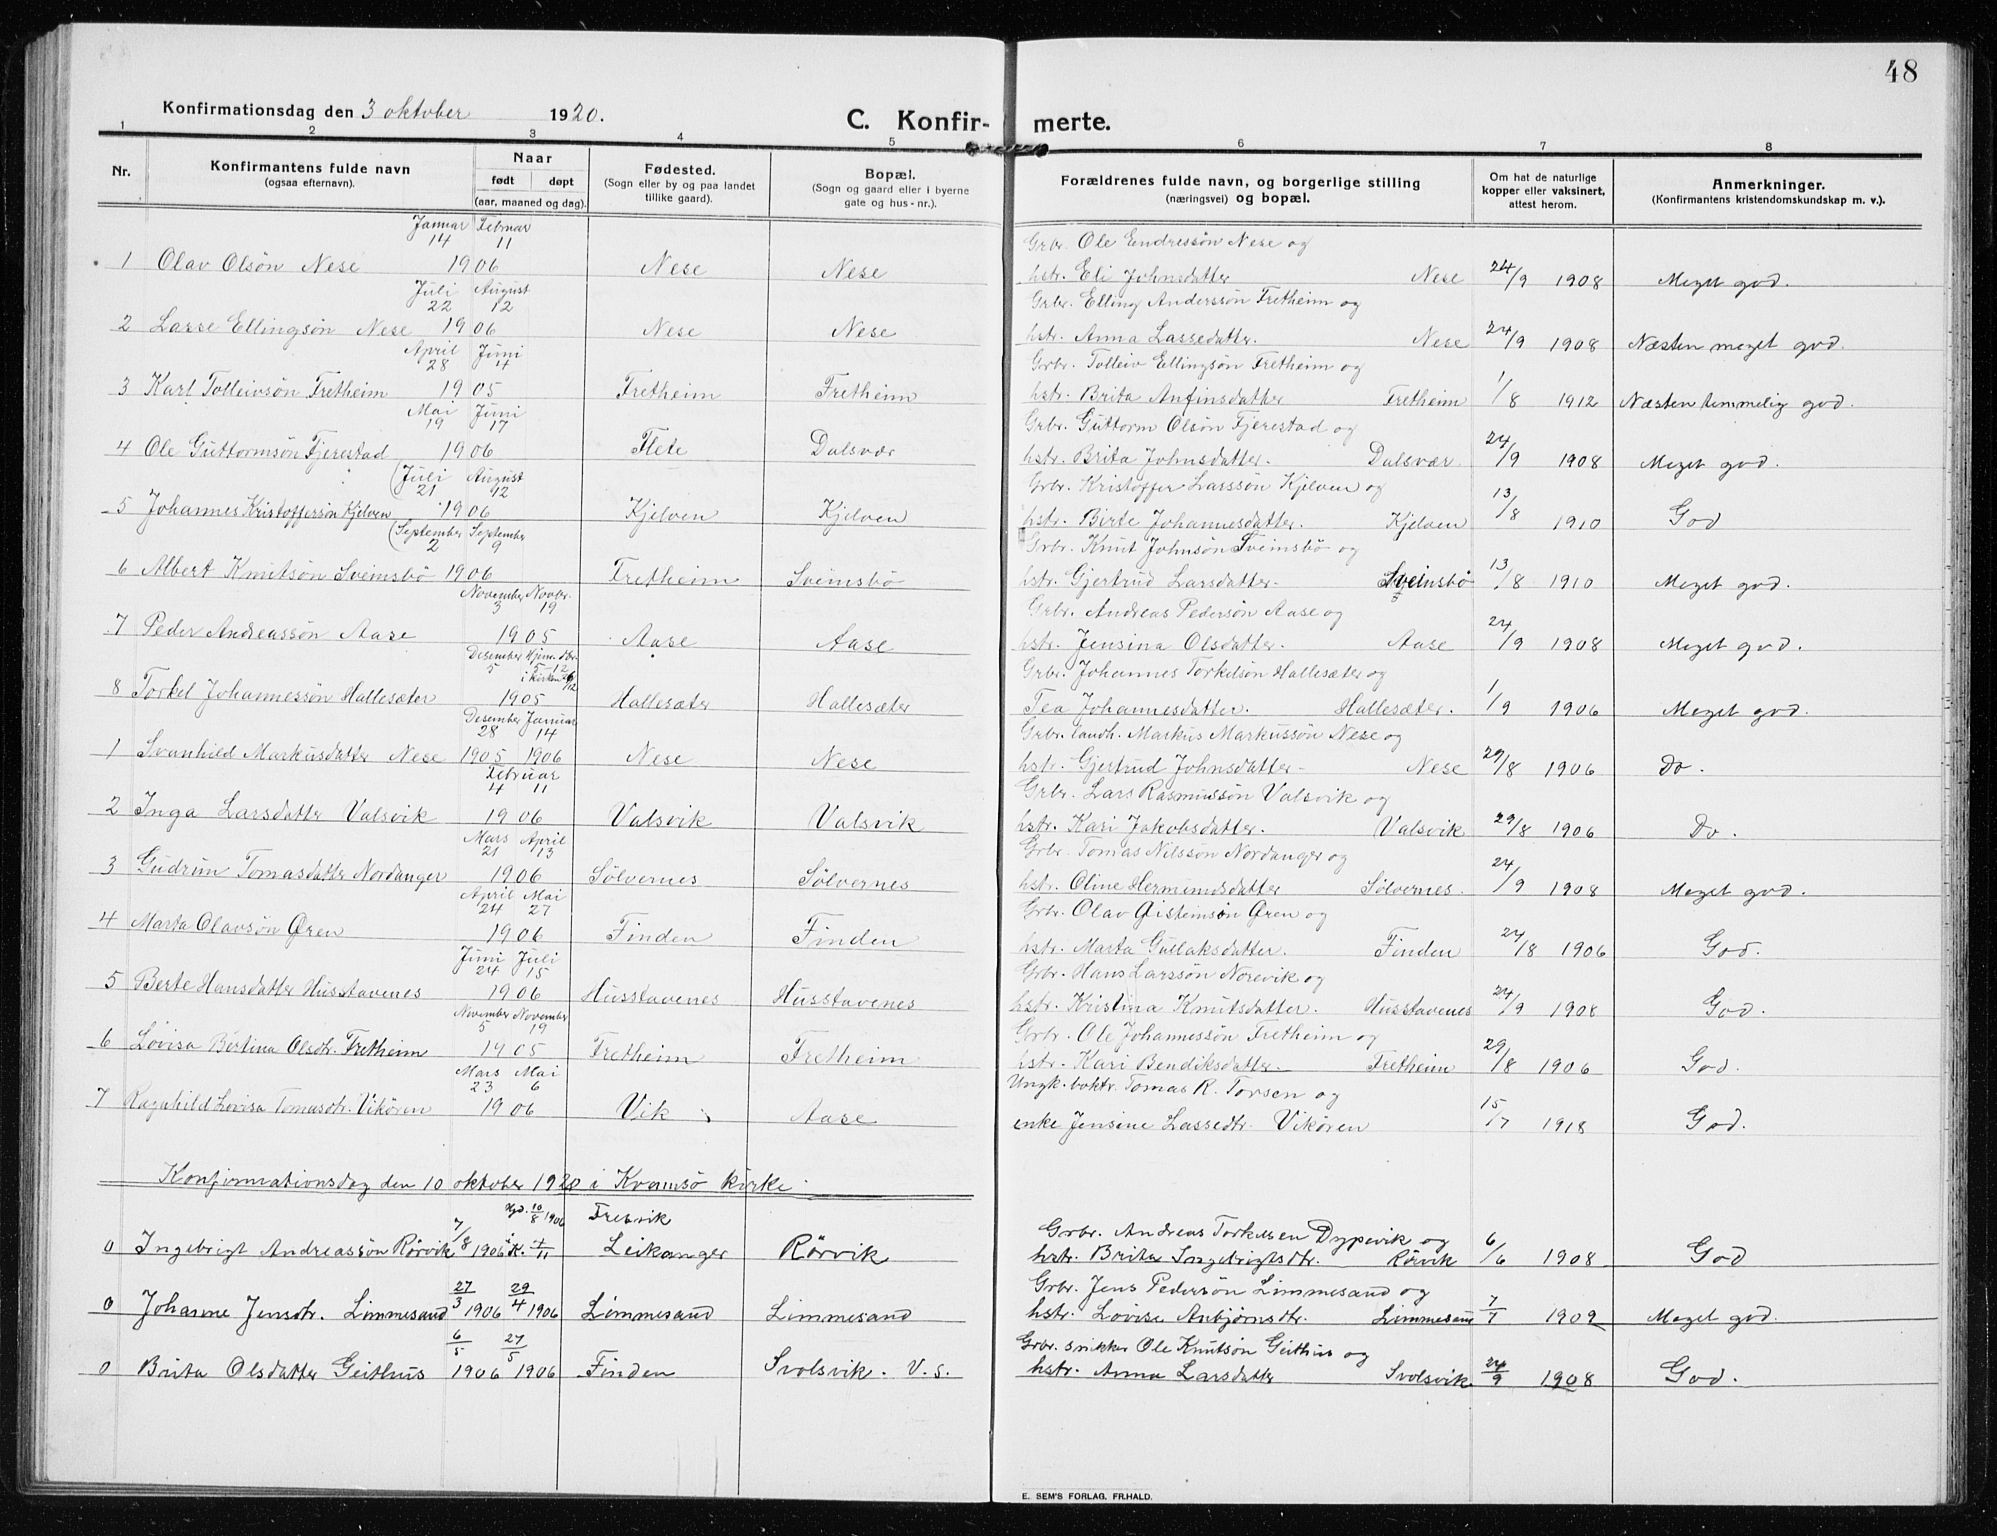 48
Konfirmationsdag den 3 oktober 1920.
C. Konfir- merte.
1 2 3 4 5 6 7 8
Nr.
Konfirmantens fulde navn
(ogsaa efternavn).
Naar
født døpt
(aar, maaned og dag).
Fødested.
(Sogn eller by og paa landet
tillike gaard).
Bopæl.
(Sogn og gaard eller i byerne
gate og hus-nr.).
Forældrenes fulde navn, og borgerlige stilling
(næringsvei) og bopæl.
Om hat de naturlige
kopper eller vaksinert,
attest herom.
Anmerkninger.
(Konfirmantens kristendomskundskap m. v.).
Januar 14 Februar 11 Grbr. Ole Endressøn Nese og
1 Olav Olsøn Nese 1906 Nese Nese hstr. Eli Johnsdatter Nese 24/9 1908 Meget god.
Juli 22 August 12 Grbr. Elling Anderssøn Fretheim og
2 Lasse Ellingsøn Nese 1906 Nese Nese hstr. Anna Lassedatter. Nese 24/9 1908 Næsten meget god.
April 28 Juni 4 Grbr. Tolleiv Ellingsøn Fretheim og
3 Karl Tolleivsøn Fretheim 1905 Fretheim Fretheim hstr. Brita Anfinsdatter Fretheim 1/8 1912 Næsten temmelig god.
Mai 19 Juni 17 Grbr. Guttorm Olsøn Fjerestad og
4 Ole Guttormsøn Fjerestad 1906 Flete Dalsvær hstr. Brita Johnsdatter. Dalsvær. 24/9 1908 Meget god.
(Juli 21 August 12 Grbr. Kristoffer Larssøn Kjelven og
5 Johannes Kristoffersøn Kjelven 1906 Kjelven Kjelven hstr. Birte Johannesdatter. Kjelven 13/8 1910 God
(September 2 September 9 Grbr. Knut Johnsøn Sveinsbø og
6 Albert Knutsøn Sveinsbø 1906 Fretheim Sveinsbø hstr. Gjertrud Larsdatter. Sveinsbø 13/8 1910 Meget god.
November 3 Novbr. 19 Grbr. Andreas Pedersøn Aase og
7 Peder Andreassøn Aase 1905 Aase Aase hstr. Jensina Olsdatter. Aase 24/9 1908 Meget god.
Desember 5 Hjem. dbr. 5-12 i kirken 26/12 Grbr. Johannes Torkelsøn Hallesæter og
8 Torkel Johannessøn Hallesæter 1905 Hallesæter Hallesæter Tea Johannesdatter. Hallesæter. 1/9 1906 Meget god.
Desember 28 Januar 14 Grbr. landh. Markus Markussøn Nese og
1 Svanhild Markusdatter Nese 1905 1906 Nese Nese hstr. Gjertrud Johnsdatter- Nese 29/8 1906 Do.
Februar 4 11 Grbr. Lars Rasmussøn Valsvik og
2 Inga Larsdatter Valsvik 1906 Valsvik Valsvik hstr. Kari Jakobsdatter. Valsvik 29/8 1906 Do.
Mars 21 April 13 Grbr. Tomas Nilssøn Nordanger og
3 Gudrun Tomasdatter Nordanger 1906 Sølvernes Sølvernes hstr. Oline Hermundsdatter Sølvernes. 24/9 1908 Meget god.
April 24 Mai 27 Grbr. Olav Øisteinsøn Øren og
4 Marta Olavsøn Øren 1906 Finden Finden hstr. Marta Gullaksdatter. Finden 24/8 1906 God.
Juni 24 Juli 15 Grbr. Hans Larssøn Norevik og
5 Berte Hansdatter Husstavenes 1906 Husstavenes Husstavenes hstr. Kristina Knutsdatter. Husstavenes 24/9 1908 God.
November 5 November 19 Grbr. Ole Johannessøn Fretheim og
6 Lovisa Bertina Olsdtr. Fretheim 1905 Fretheim Fretheim hstr. Kari Bendiksdatter. Fretheim 29/8 1906 God.
Mars 23 Mai 6 Ungk. boktr. Tomas R. Torsen og
7 Ragnhild Lovisa Tomasdtr. Vikøren 1906 Vik Aase enke Jensine Lassedtr. Vikøren 15/7 1918 God.
Konfirmationsdag den 10 oktober 1920 i Kvamsø kirke.
Hjd. 10/8 1906 Fresvik Grbr. Andreas Torkelsen Dypevik og
0 Ingebrigt Andreassøn Rørvik 7/8 1906 i K. 4/11 Leikanger Rørvik hstr. Brita Ingebrigtsdtr. Rørvik 6/6 1908 God
27/3 29/4 Grbr. Jens Pedersøn Limmesand og
0 Johanne Jensdtr. Limmesand 1906 1906 Limmesand Limmesand hstr. Lovise Anbjørnsdtr. Limmesand 7/7 1909 Meget god.
6/5 27/5 Grbr. snikker Ole Knutsøn Geithus og
0 Brita Olsdatter Geithus 1906 1906 Finden Svolsvik. V.S. hstr. Anna Larsdatter Svolsvik 24/9 1908 God.
E. SEM'S FORLAG, FR.HALD.